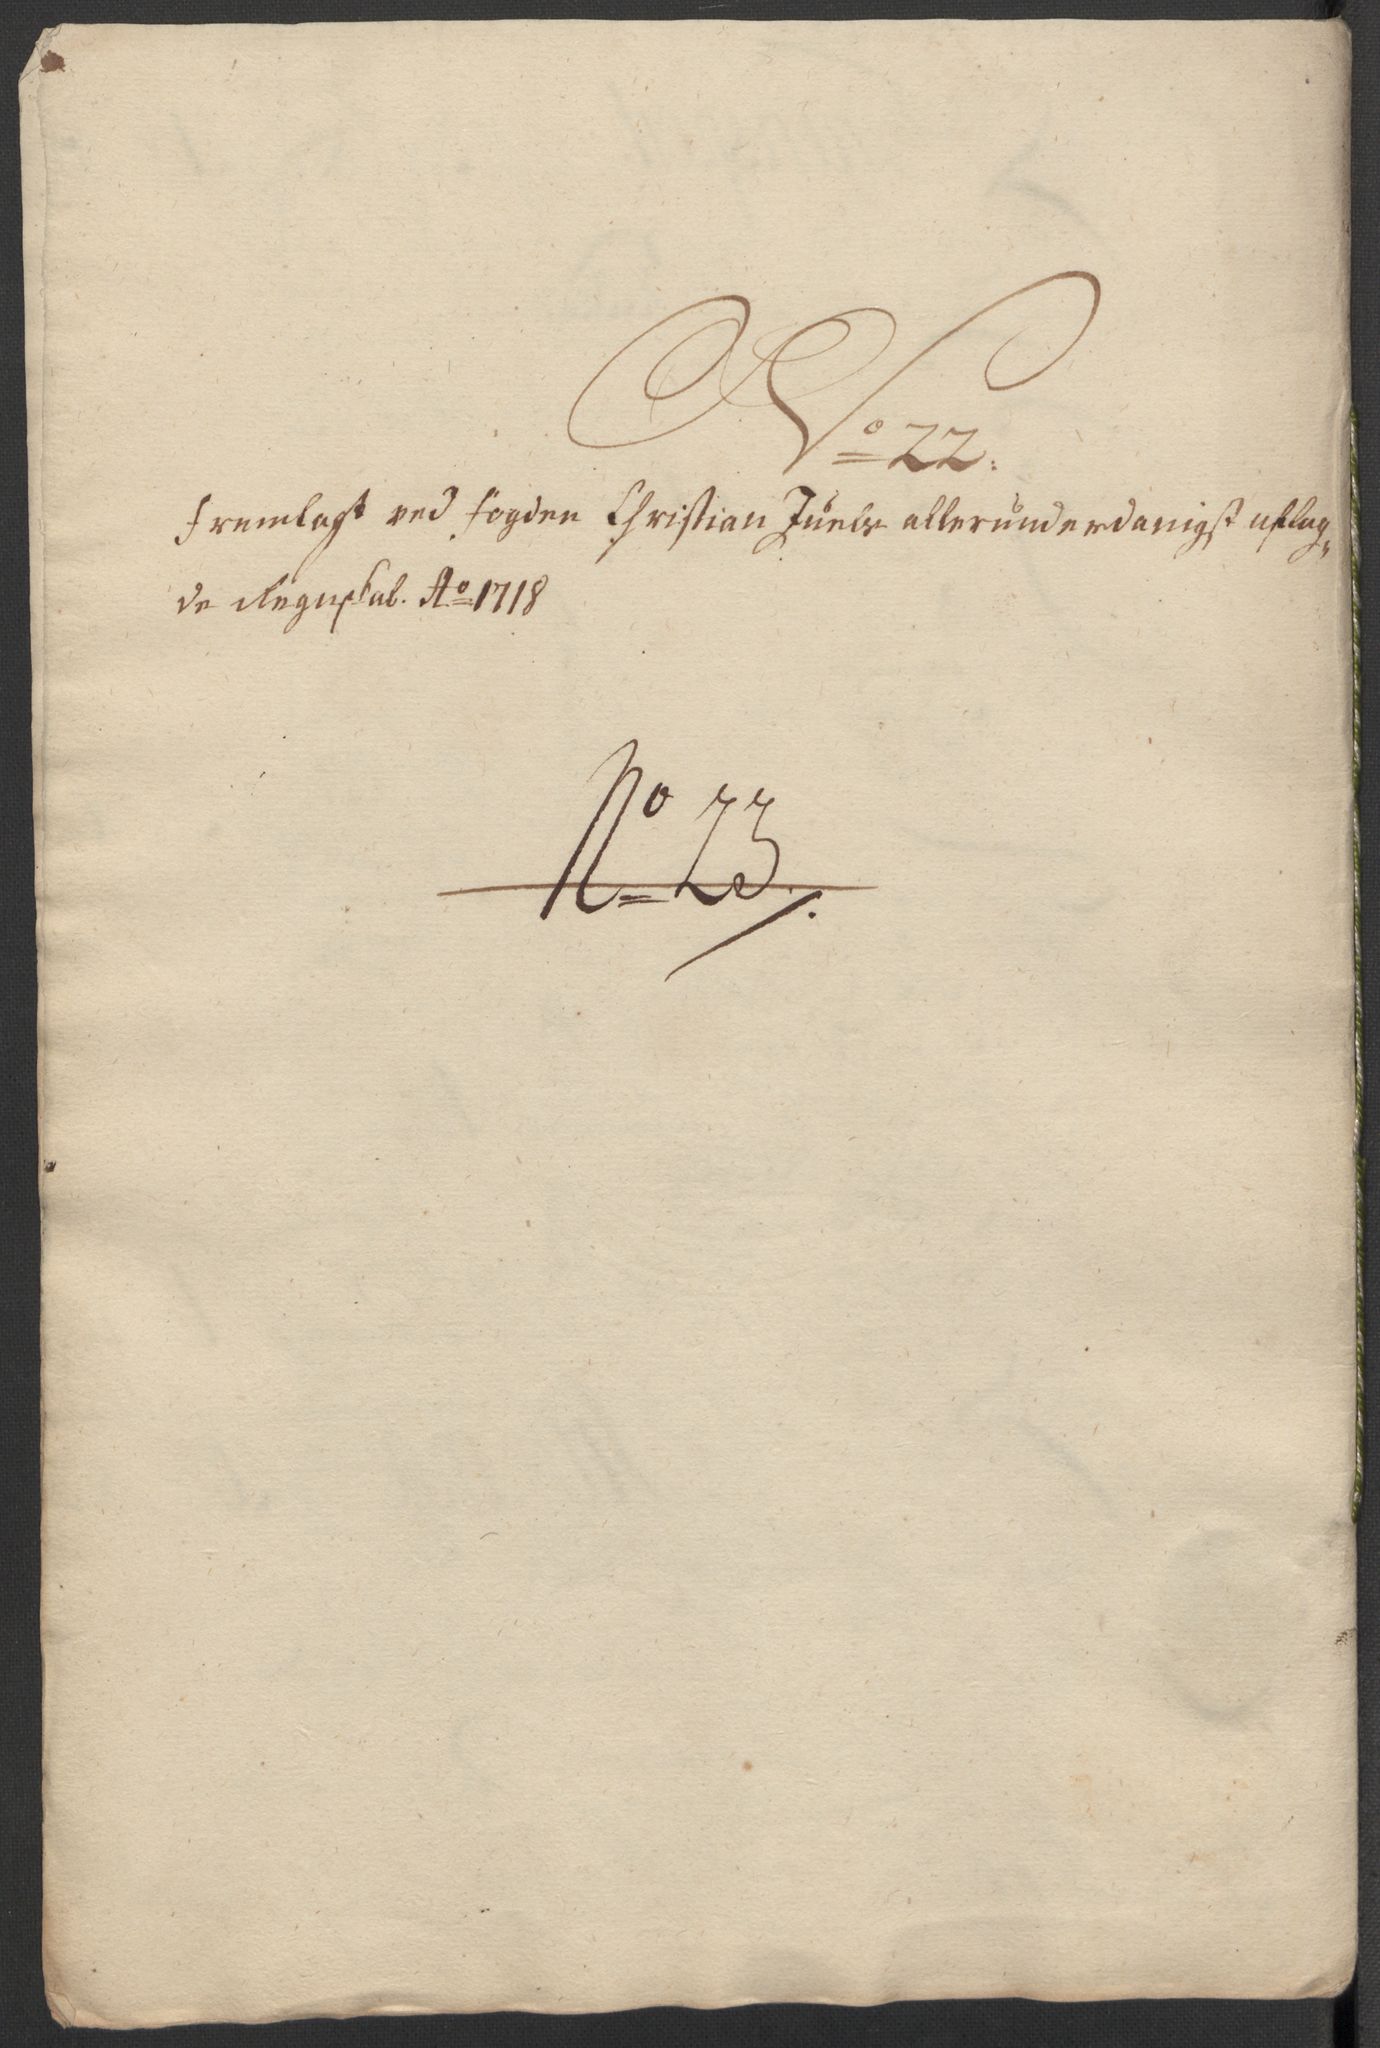 No 22.
Fremlagt ved Fogden Christian Juels allerunderdanigst aflag,
de Regnskab. Ao 1718
No 23.